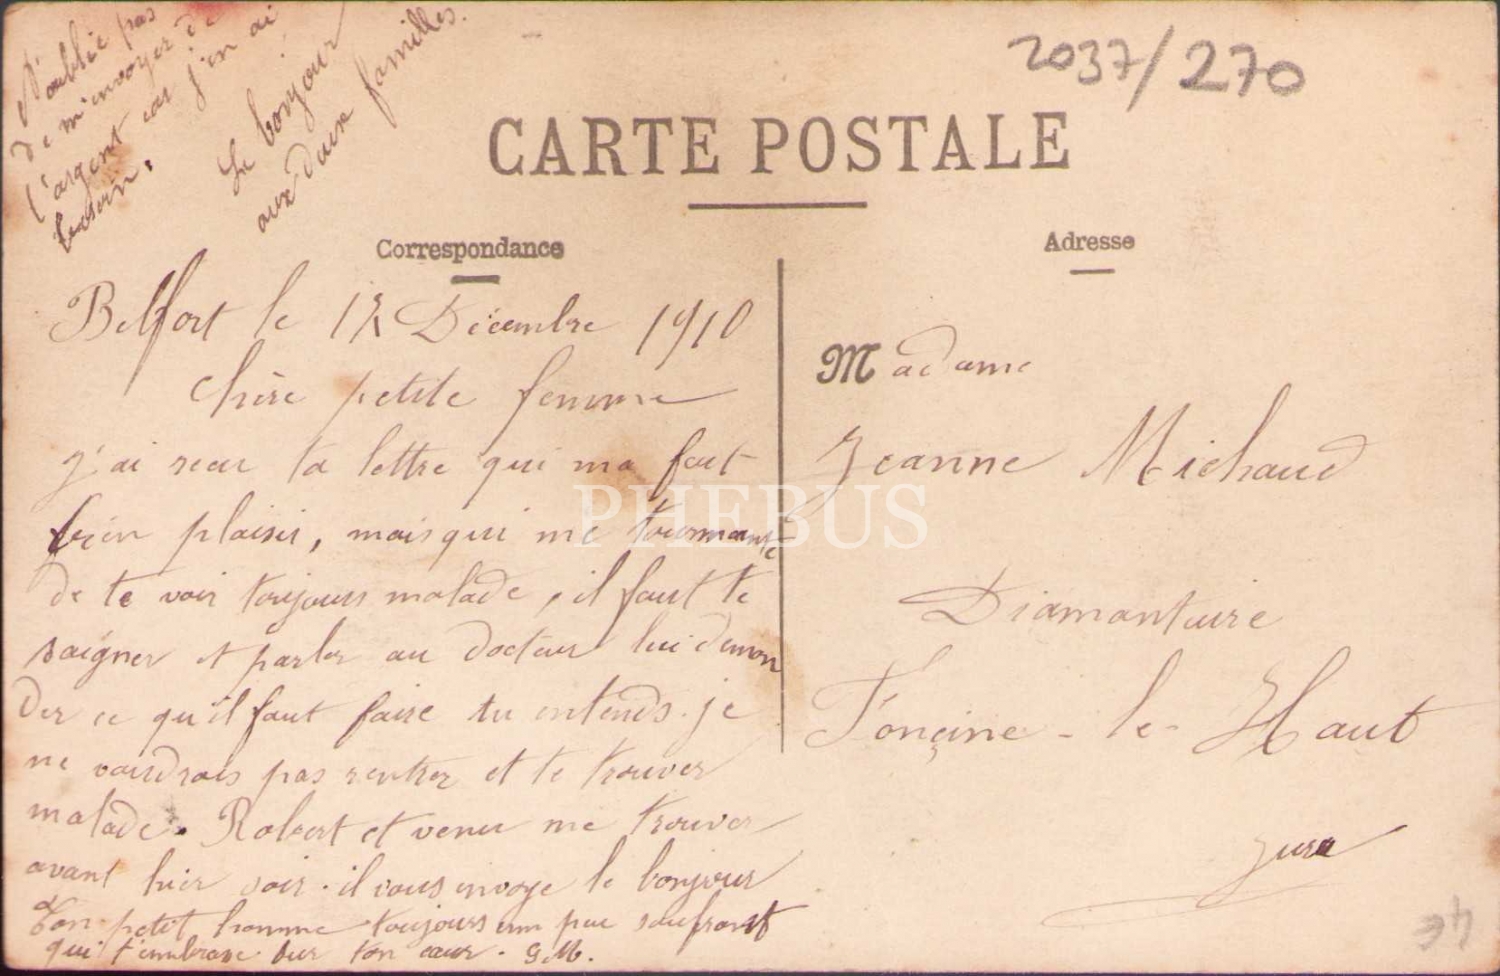 N'oublie pas
de m'envoyer de
l'argent car j'en ai
besoin.
Le bonjour
aux deux familles.
2037/270
CARTE POSTALE
Correspondance
Adresse
Belfort le 12 Décembre 1910
Chère petite femme
j'ai recu ta lettre qui ma fait
bien plaisir, mais qui me tourmente
de te voir toujours malade, il faut te
soigner et parler au docteur lui deman
der ce qu'il faut faire tu entends. je
ne voudrais pas rentrer et te trouver
malade. Robert et venu me trouver
avant hier soir. il vous envoye le bonjour
Ton petit homme toujours un peu soufrant
qui t'embrasse sur ton cœur. G.M.
Madame
Jeanne Michaud
Diamantaire
Fonçine-le-Haut
Jura
4€
PHEBUS